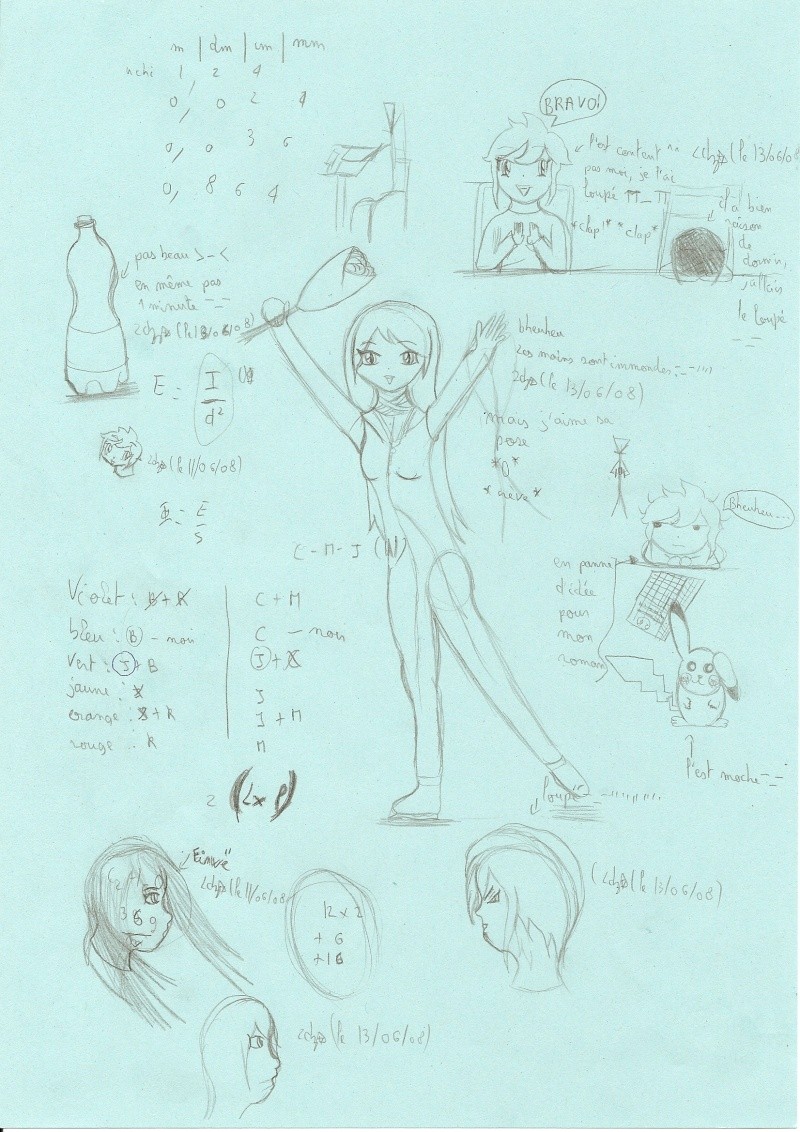 m | dm | cm | mm
1, 2 4
0, 0 2 4
0, 0 3 6
0, 8 6 4
BRAVO!
l'est content ^^
(le 13/06/08)
pas moi, je l'ai
loupé TT_TT
*clap!* *clap*
il a bien
raison
de
dormir,
j'allais
le loupé
-_-
pas beau >-<
en même pas
1 minute -_-
(le 13/06/08)
E = I
d²
(le 11/06/08)
E
S
bheuheu
Les mains sont immondes -_-''''
(le 13/06/08)
mais j'aime sa
pose
*O*
*rêve*
Bheuheu...
en panne
d'idée
pour
mon
roman
l'est moche -_-
C - M - J (N)
Violet : B + R
C + M
bleu : B - noir
C - noir
vert : J + B
J + C
jaune : J
J
orange : J + R
J + M
rouge : R
M
2 (L x l)
loupé -_-''''''''
Einwë
(le 11/06/08)
3 6 9
12 x 2
+ 6
+ 16
(le 13/06/08)
(le 13/06/08)